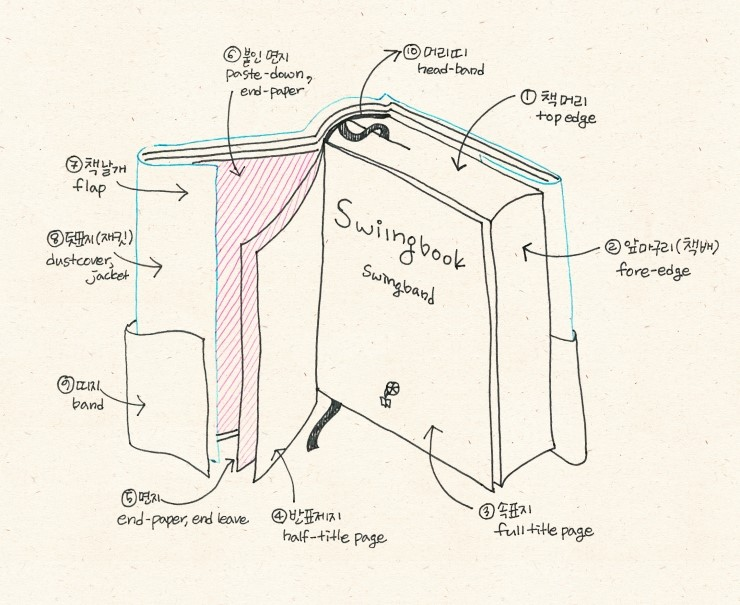 ⑥ 붙인 면지
paste-down,
end-paper
⑩ 머리띠
head-band
① 책머리
top edge
⑦ 책날개
flap
⑧ 덧표지(재킷)
dustcover,
jacket
② 앞마구리(책배)
fore-edge
Swiingbook
Swingband
⑨ 띠지
band
⑤ 면지
end-paper, end leave
④ 반표제지
half-title page
③ 속표지
full title page